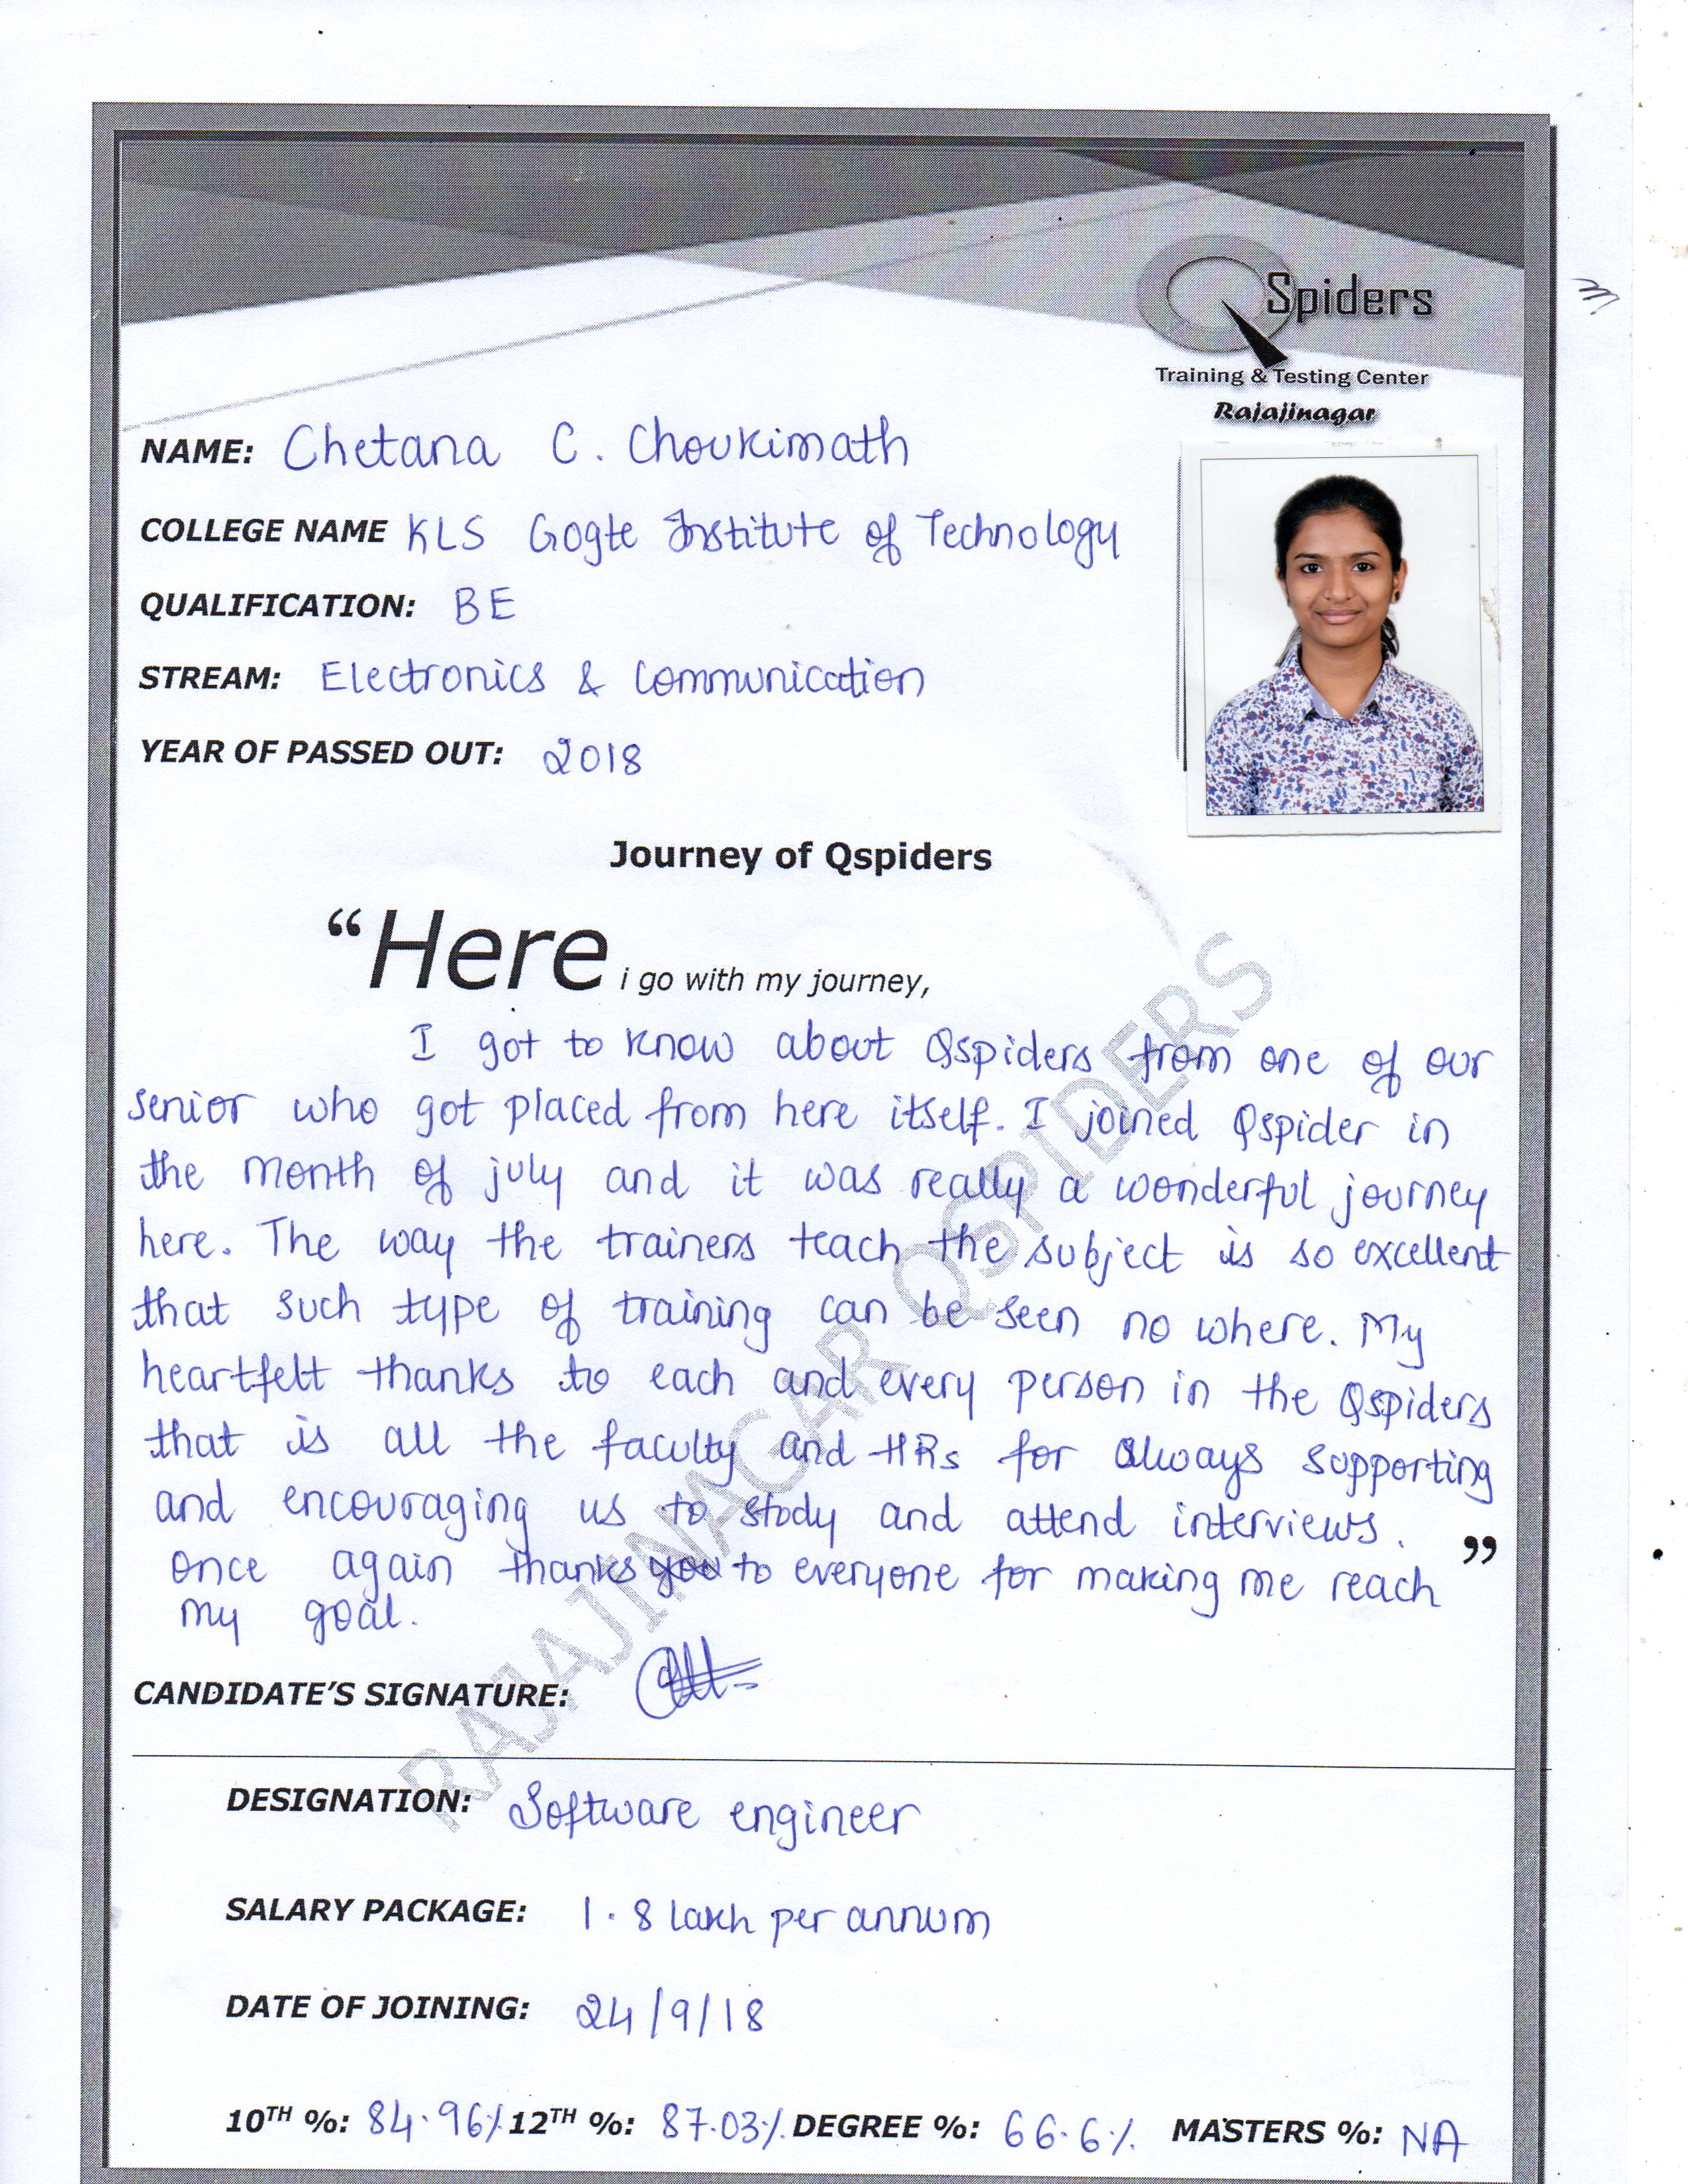 QSpiders
Training & Testing Center
Rajajinagar
NAME: Chetana C. Choukimath
COLLEGE NAME KLS Gogte Institute of Technology
QUALIFICATION: BE
STREAM: Electronics & Communication
YEAR OF PASSED OUT: 2018
Journey of Qspiders
“Here i go with my journey,
I got to know about Qspiders from one of our
senior who got placed from here itself. I joined Qspider in
the month of july and it was really a wonderful journey
here. The way the trainers teach the subject is so excellent
that such type of training can be seen no where. My
heartfelt thanks to each and every person in the Qspiders
that is all the faculty and HRs for always supporting
and encouraging us to study and attend interviews. ”
once again thanks you to everyone for making me reach
my goal.
CANDIDATE’S SIGNATURE:
RAJAJINAGAR QSPIDERS
DESIGNATION: Software engineer
SALARY PACKAGE: 1.8 lakh per annum
DATE OF JOINING: 24/9/18
10TH %: 84.96% 12TH %: 87.03% DEGREE %: 66.6% MASTERS %: NA